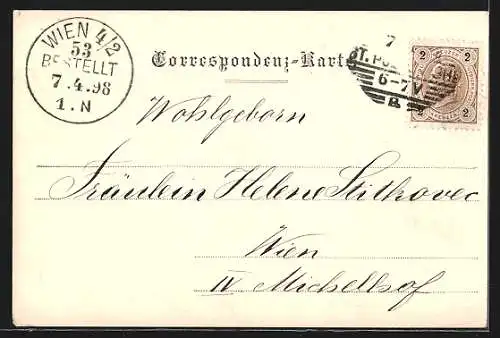 WIEN 4/2
53
BESTELLT
7.4.98
1.N
Correspondenz-Karte
7
ST. PÖ
6-7V
B
2 2
2 2
Wohlgeborn
Fräulein Helene Stitkovec
Wien
IV Michellhof